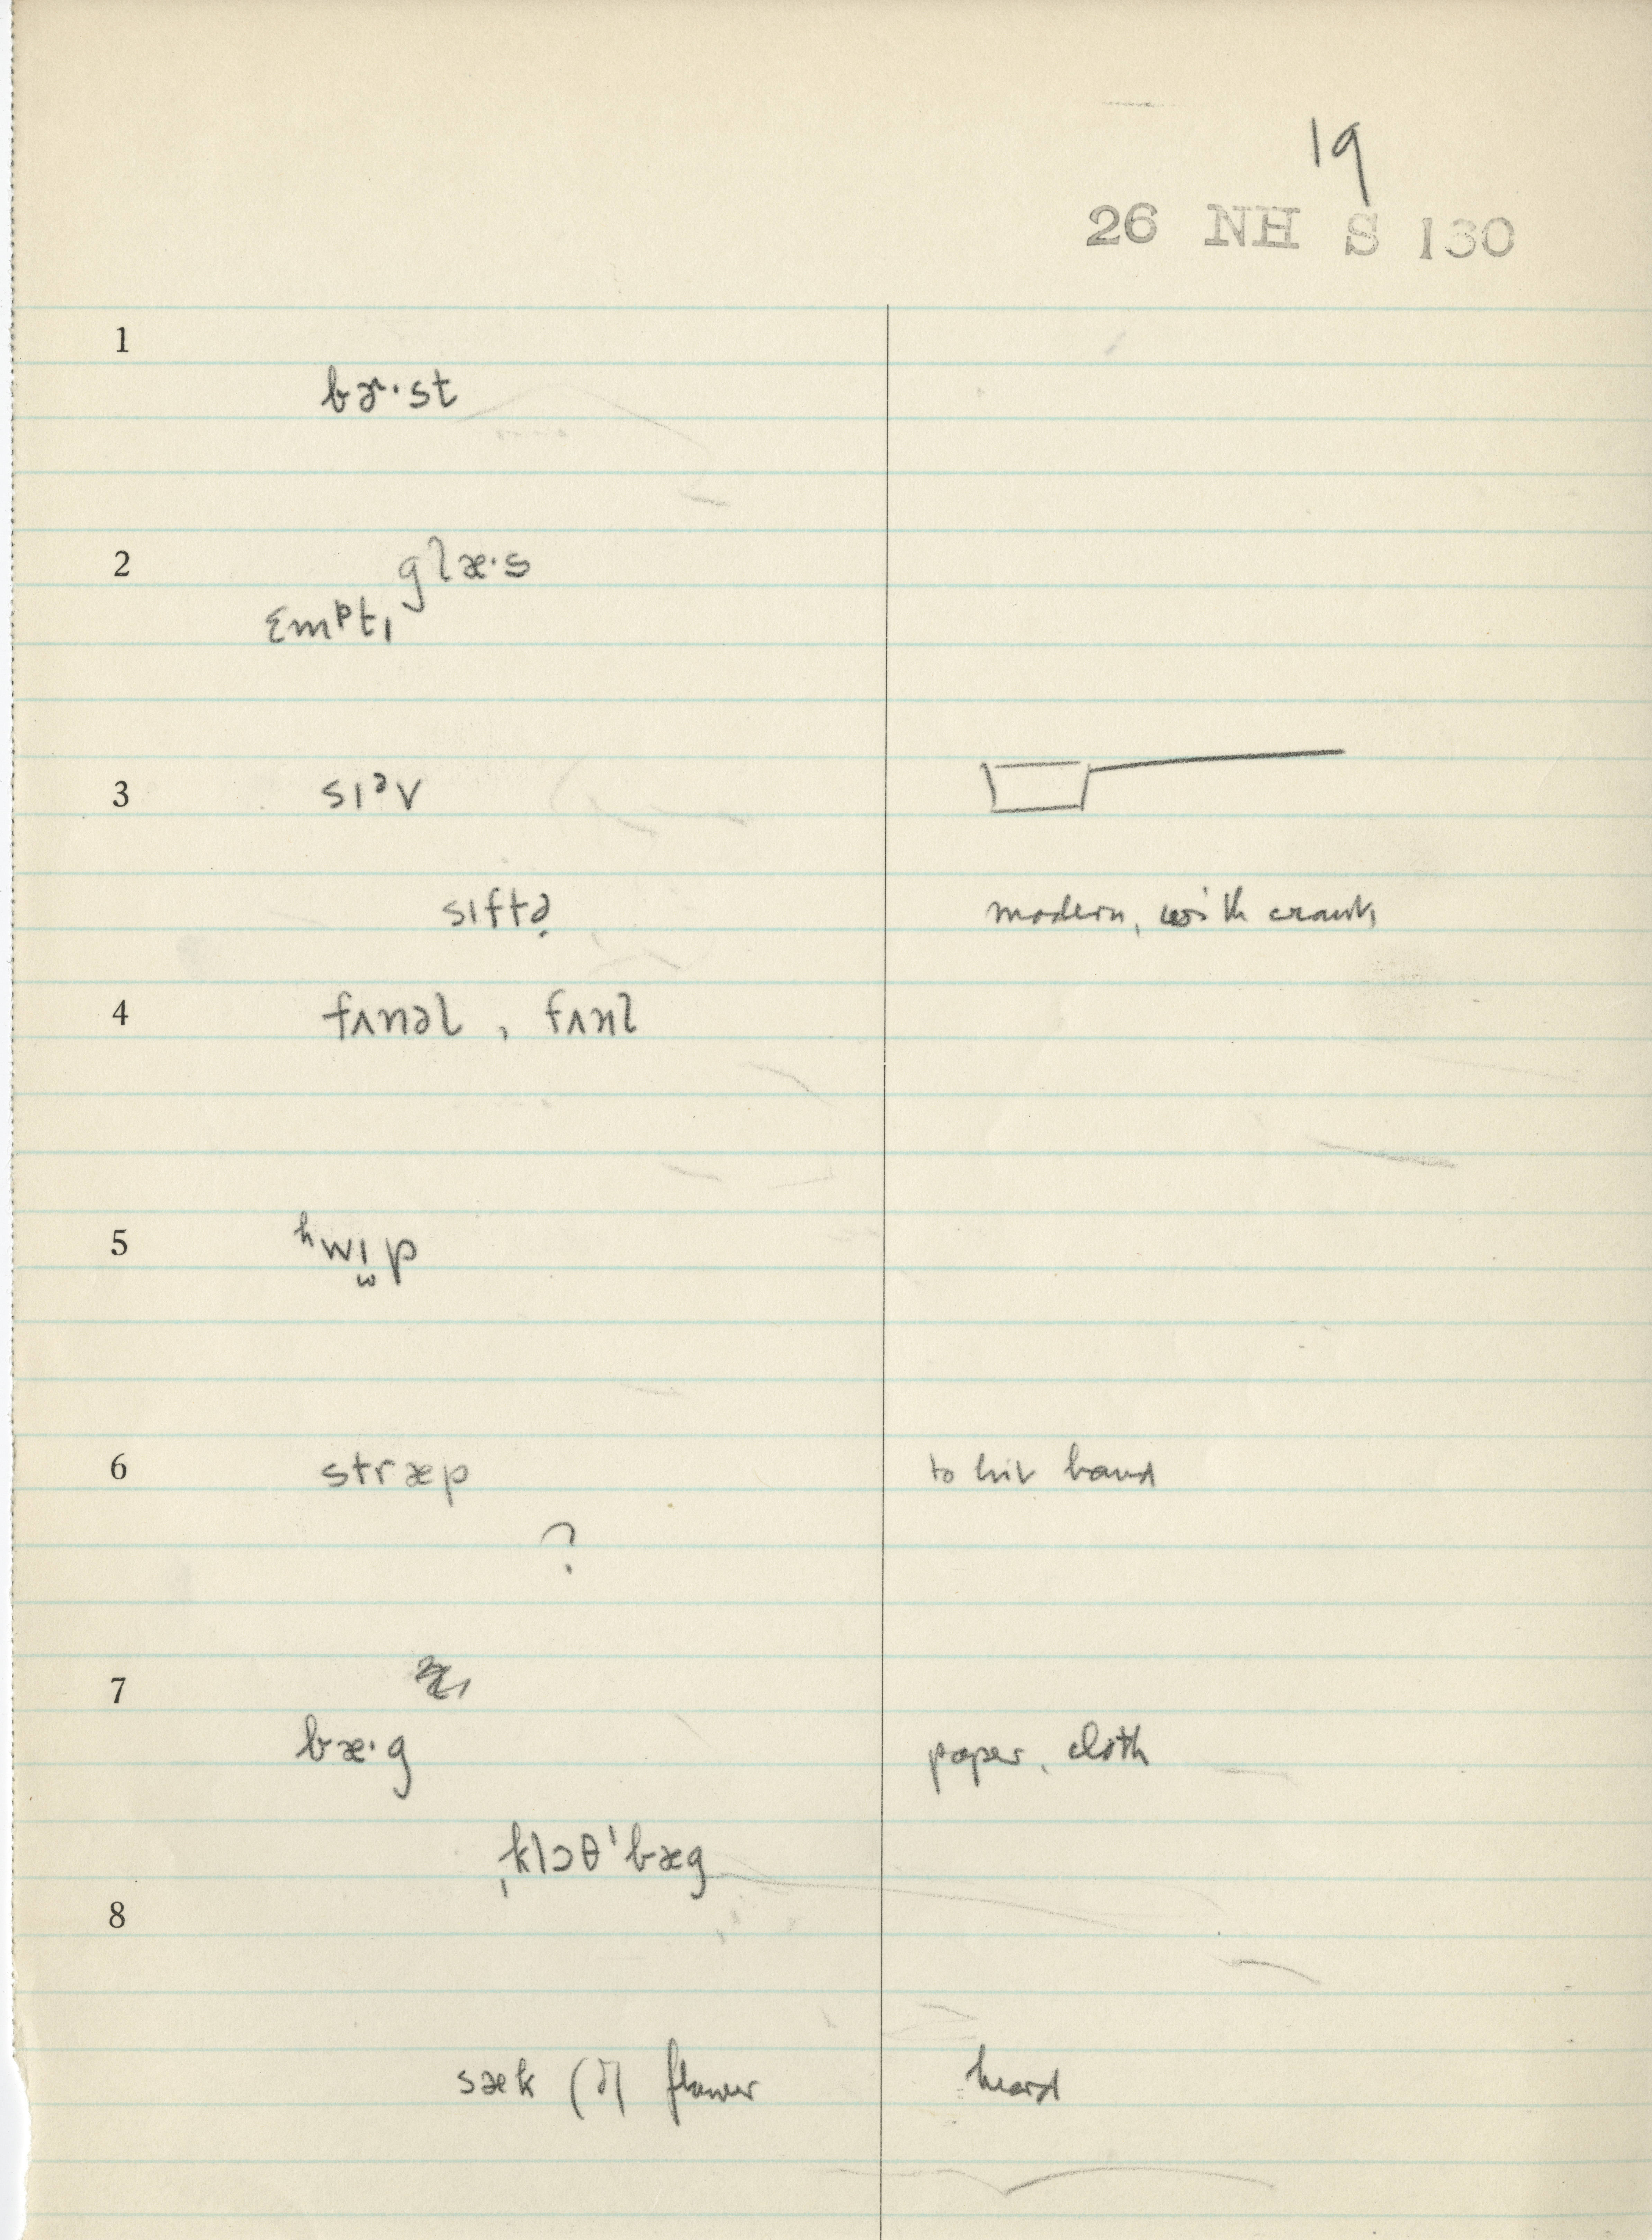 19
26 NH S 130
1
bɚ·st
2 glæ·s
ɛmᵖtɪ
3 sɪᵊv
sɪftə̣ modern, with crank
4 fʌnəl , fʌnl
5 ʰwɪ̫p
6 stræp to hit hand
?
7
bæ·g paper, cloth
ˌklɔθˈbæg
8
sæk (ə) flower heard